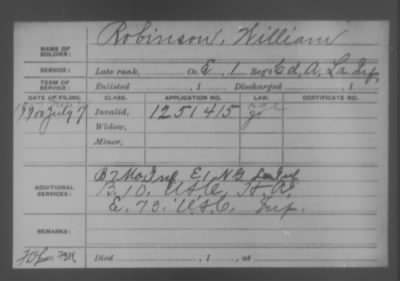 NAME OF SOLDIER: Robinson, William
SERVICE: Late rank, Co. E, 1 Reg't Cd, A. La Inf.
TERM OF SERVICE: Enlisted , 1 Discharged , 1
DATE OF FILING. CLASS. APPLICATION NO. LAW. CERTIFICATE NO.
1900 July 7 Invalid, 1251415
Widow,
Minor,
ADDITIONAL SERVICES: E 1 N.G. La Inf
B. 10. U.S.C. H.A.
E. 73. U.S.C. Inf.
REMARKS:
Died , 1 , at